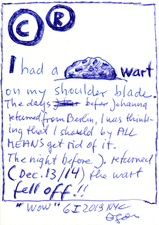 C R
I had a wart
on my shoulder blade.
The days befor Johanna
returned from Berlin, I was think-
ing that I should by ALL
MEANS get rid of it.
The night before J. returned
(Dec. 13/14) the wart
fell off.!!
"WOW" GI 2013 NYC